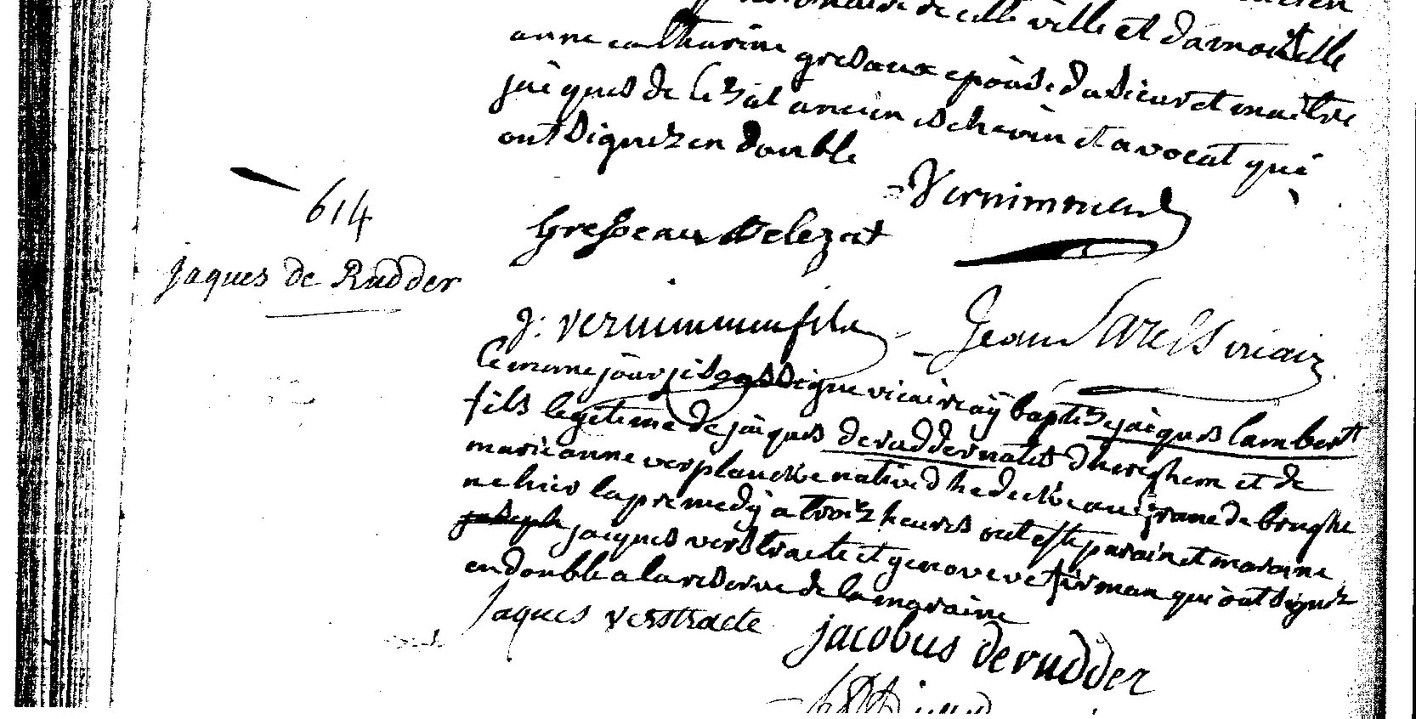 de cette ville et damoiselle
anne catharine gresaux epouse du sieur et maitre
jacques de leZat ancien eschevin et avocat qui
ont signez en double
Vernimmen
Gresseau Delezat
614
jaques de Rudder
J: vernimmen fils
Jean vicair
Le meme jour je sousigne vicaire aÿ baptisé jacques lambert
fils legitime de jacques derudder natif dhereghem et de
marie anne verplancke native dhedecke au franc de brughe
ne hier lapremedÿ a troiz heures ont esté parain et maraine
joseph jacques verstracte et genoveve firman qui ont signez
en double a la reserve de la maraine
Jaques verstracte
jacobus derudder